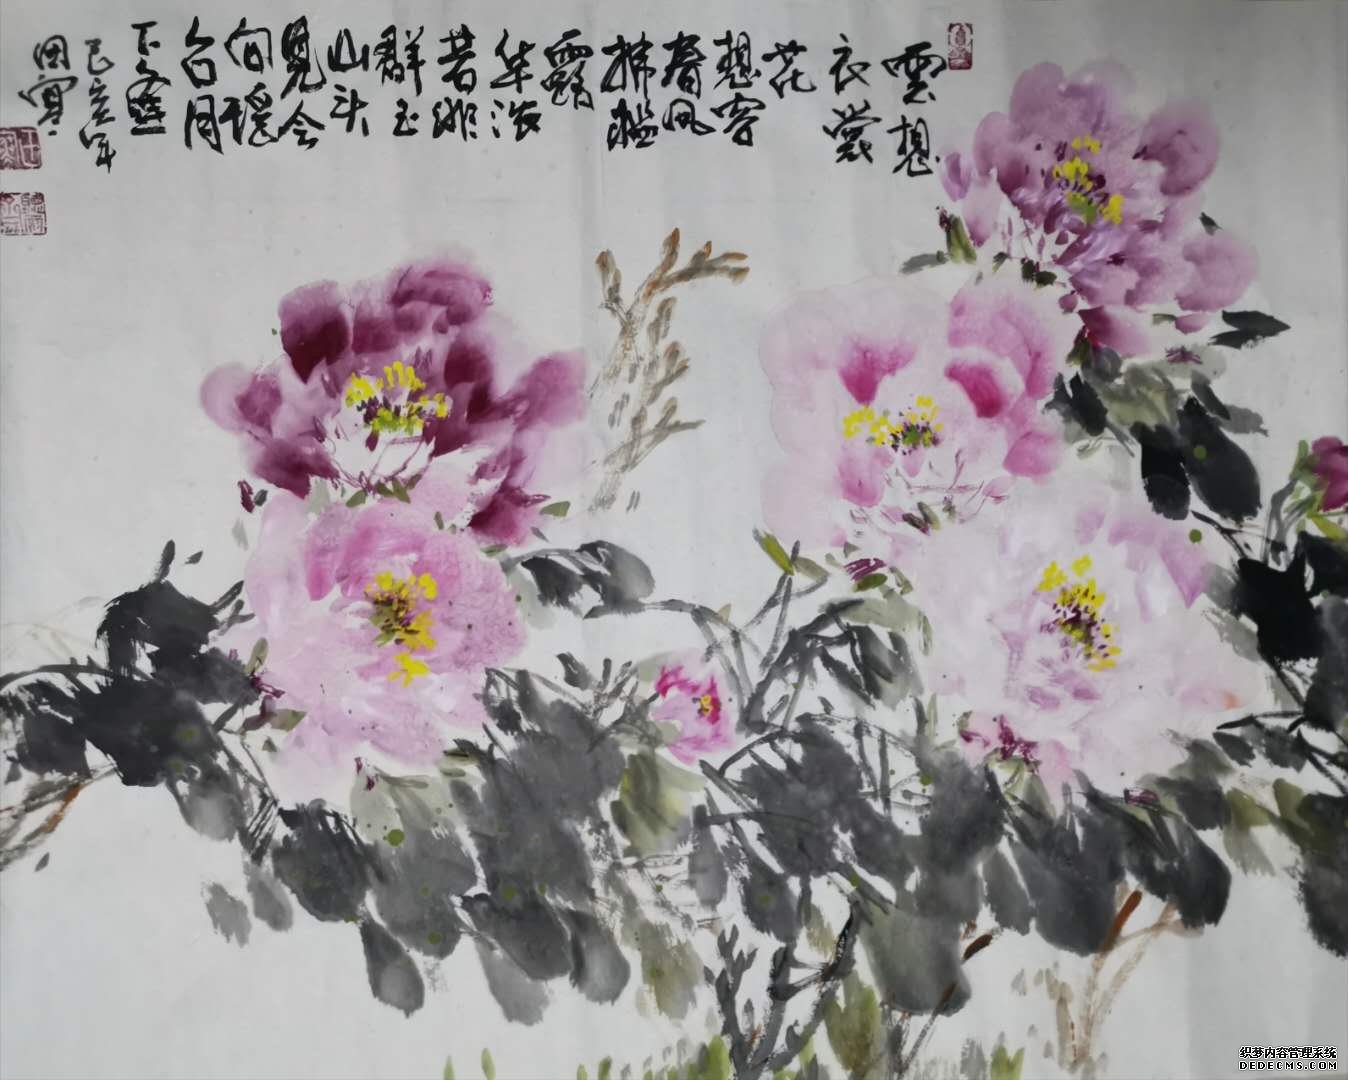 雲想
衣裳
花
想容
春風
拂檻
露
华浓
若非
群玉
山头
見会
向瑶
台月
下逢
己亥年
织梦内容管理系统
DEDECMS.COM